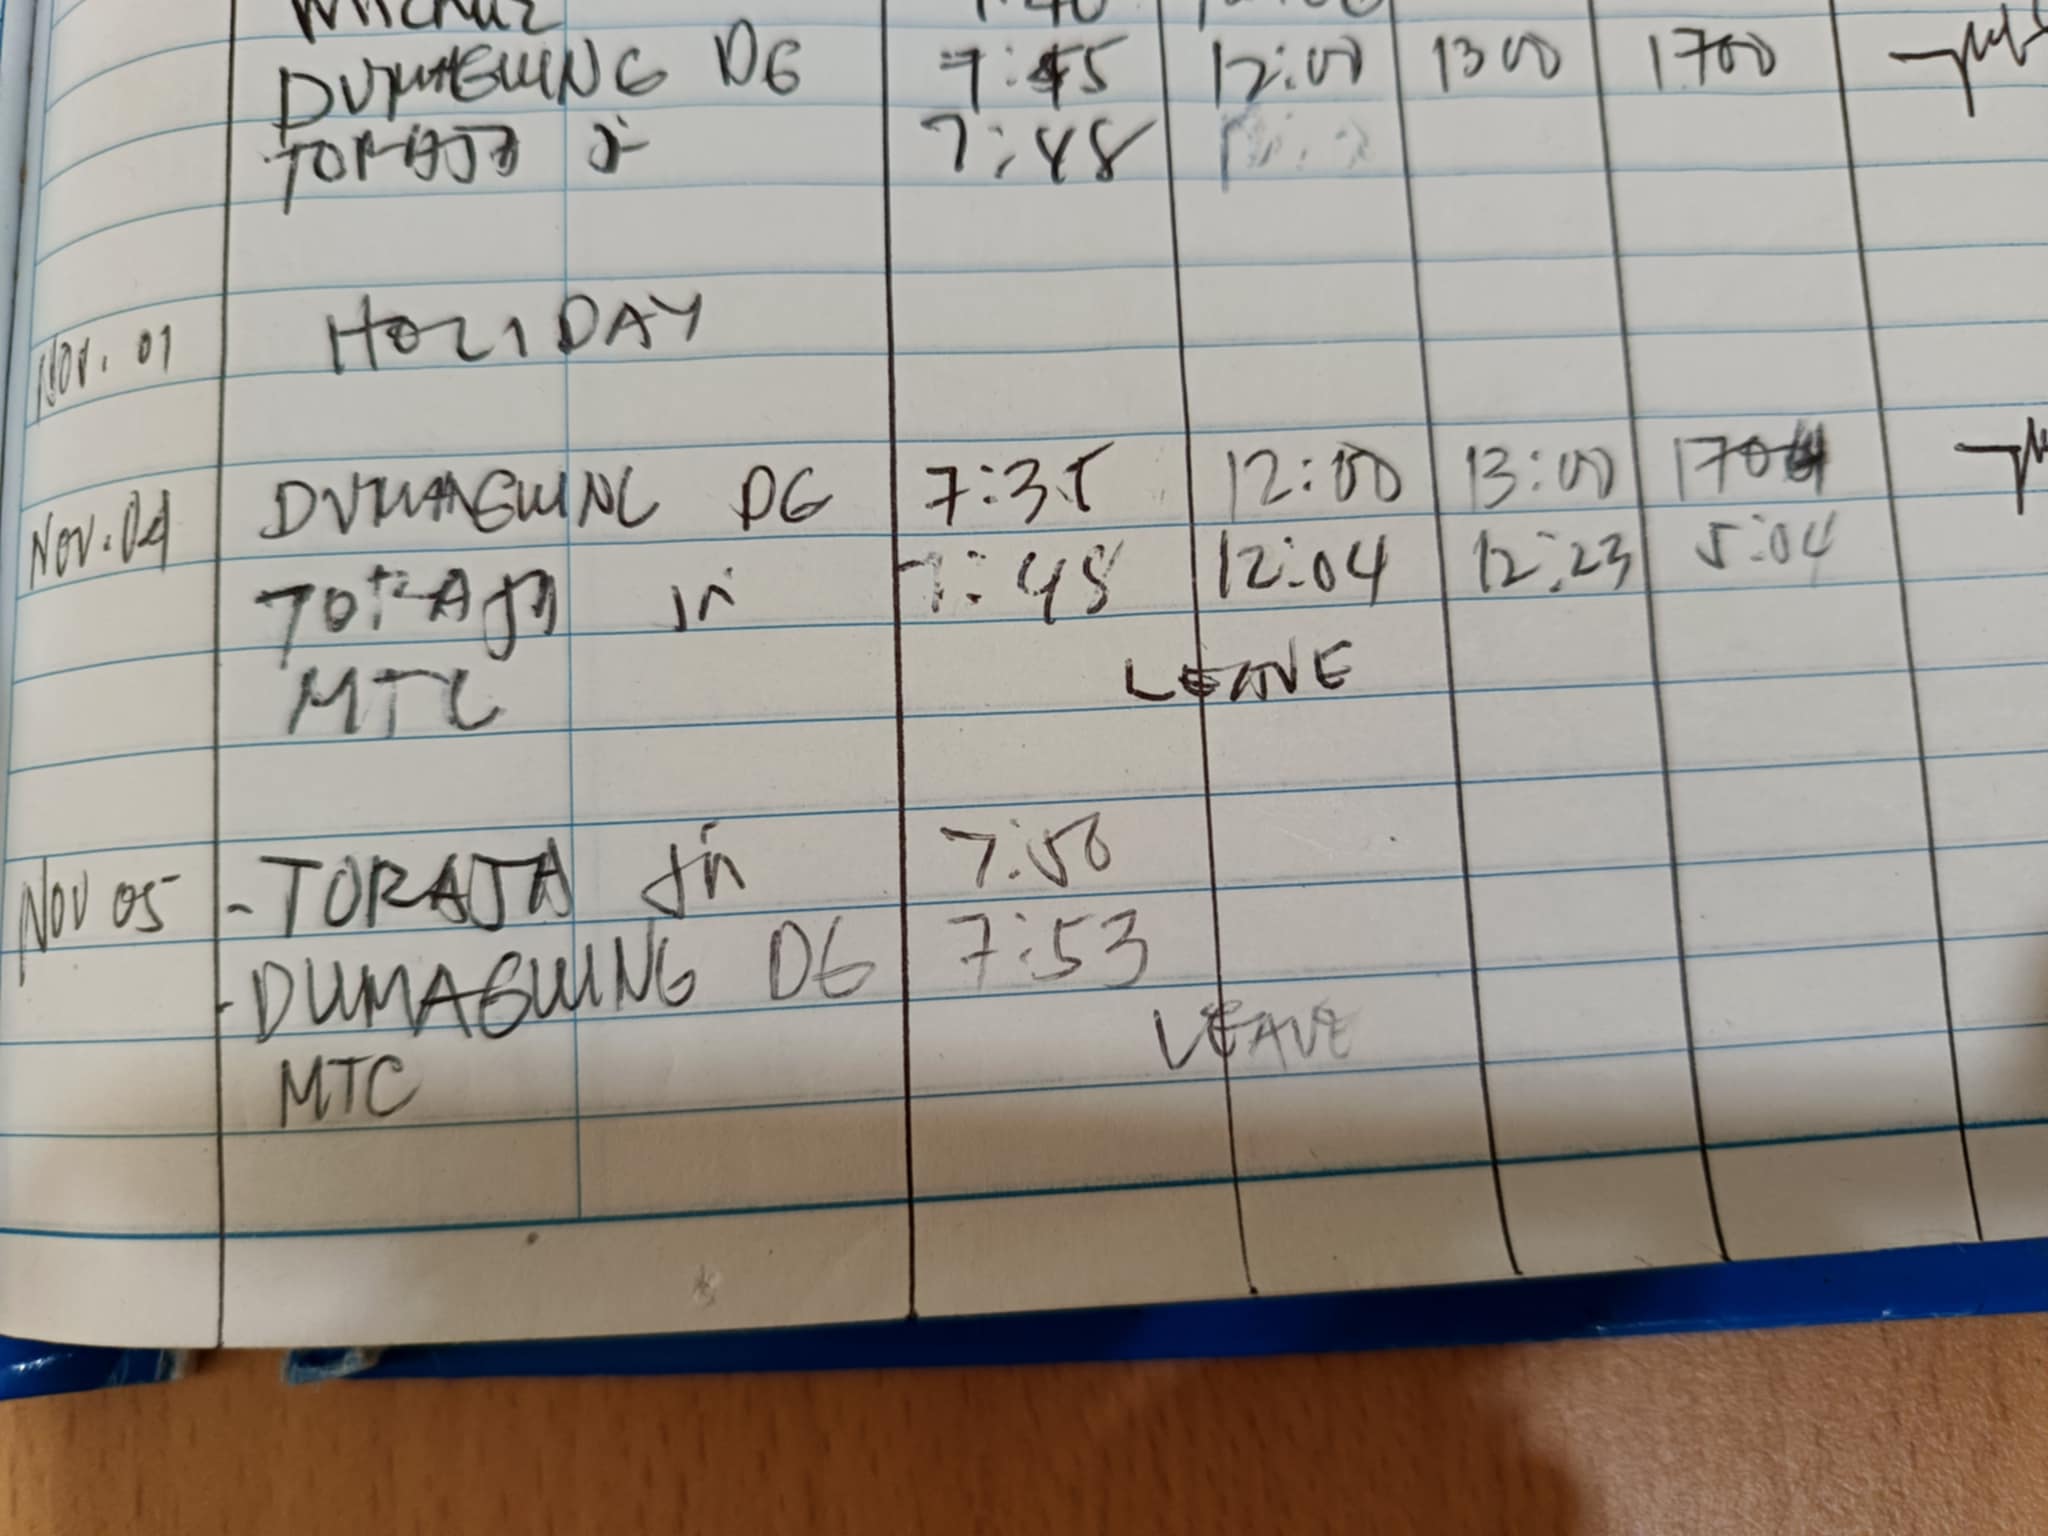 DUMAGUING DG 7:45 12:00 1300 1700
TORAJA 7:48
Nov. 01 HOLIDAY
Nov. 04 DUMAGUING DG 7:35 12:00 13:00 1704
TORAJA jn 7:48 12:04 12:23 5:04
MTC LEAVE
Nov 05 - TORAJA jn 7:50
- DUMAGUING DG 7:53
MTC LEAVE